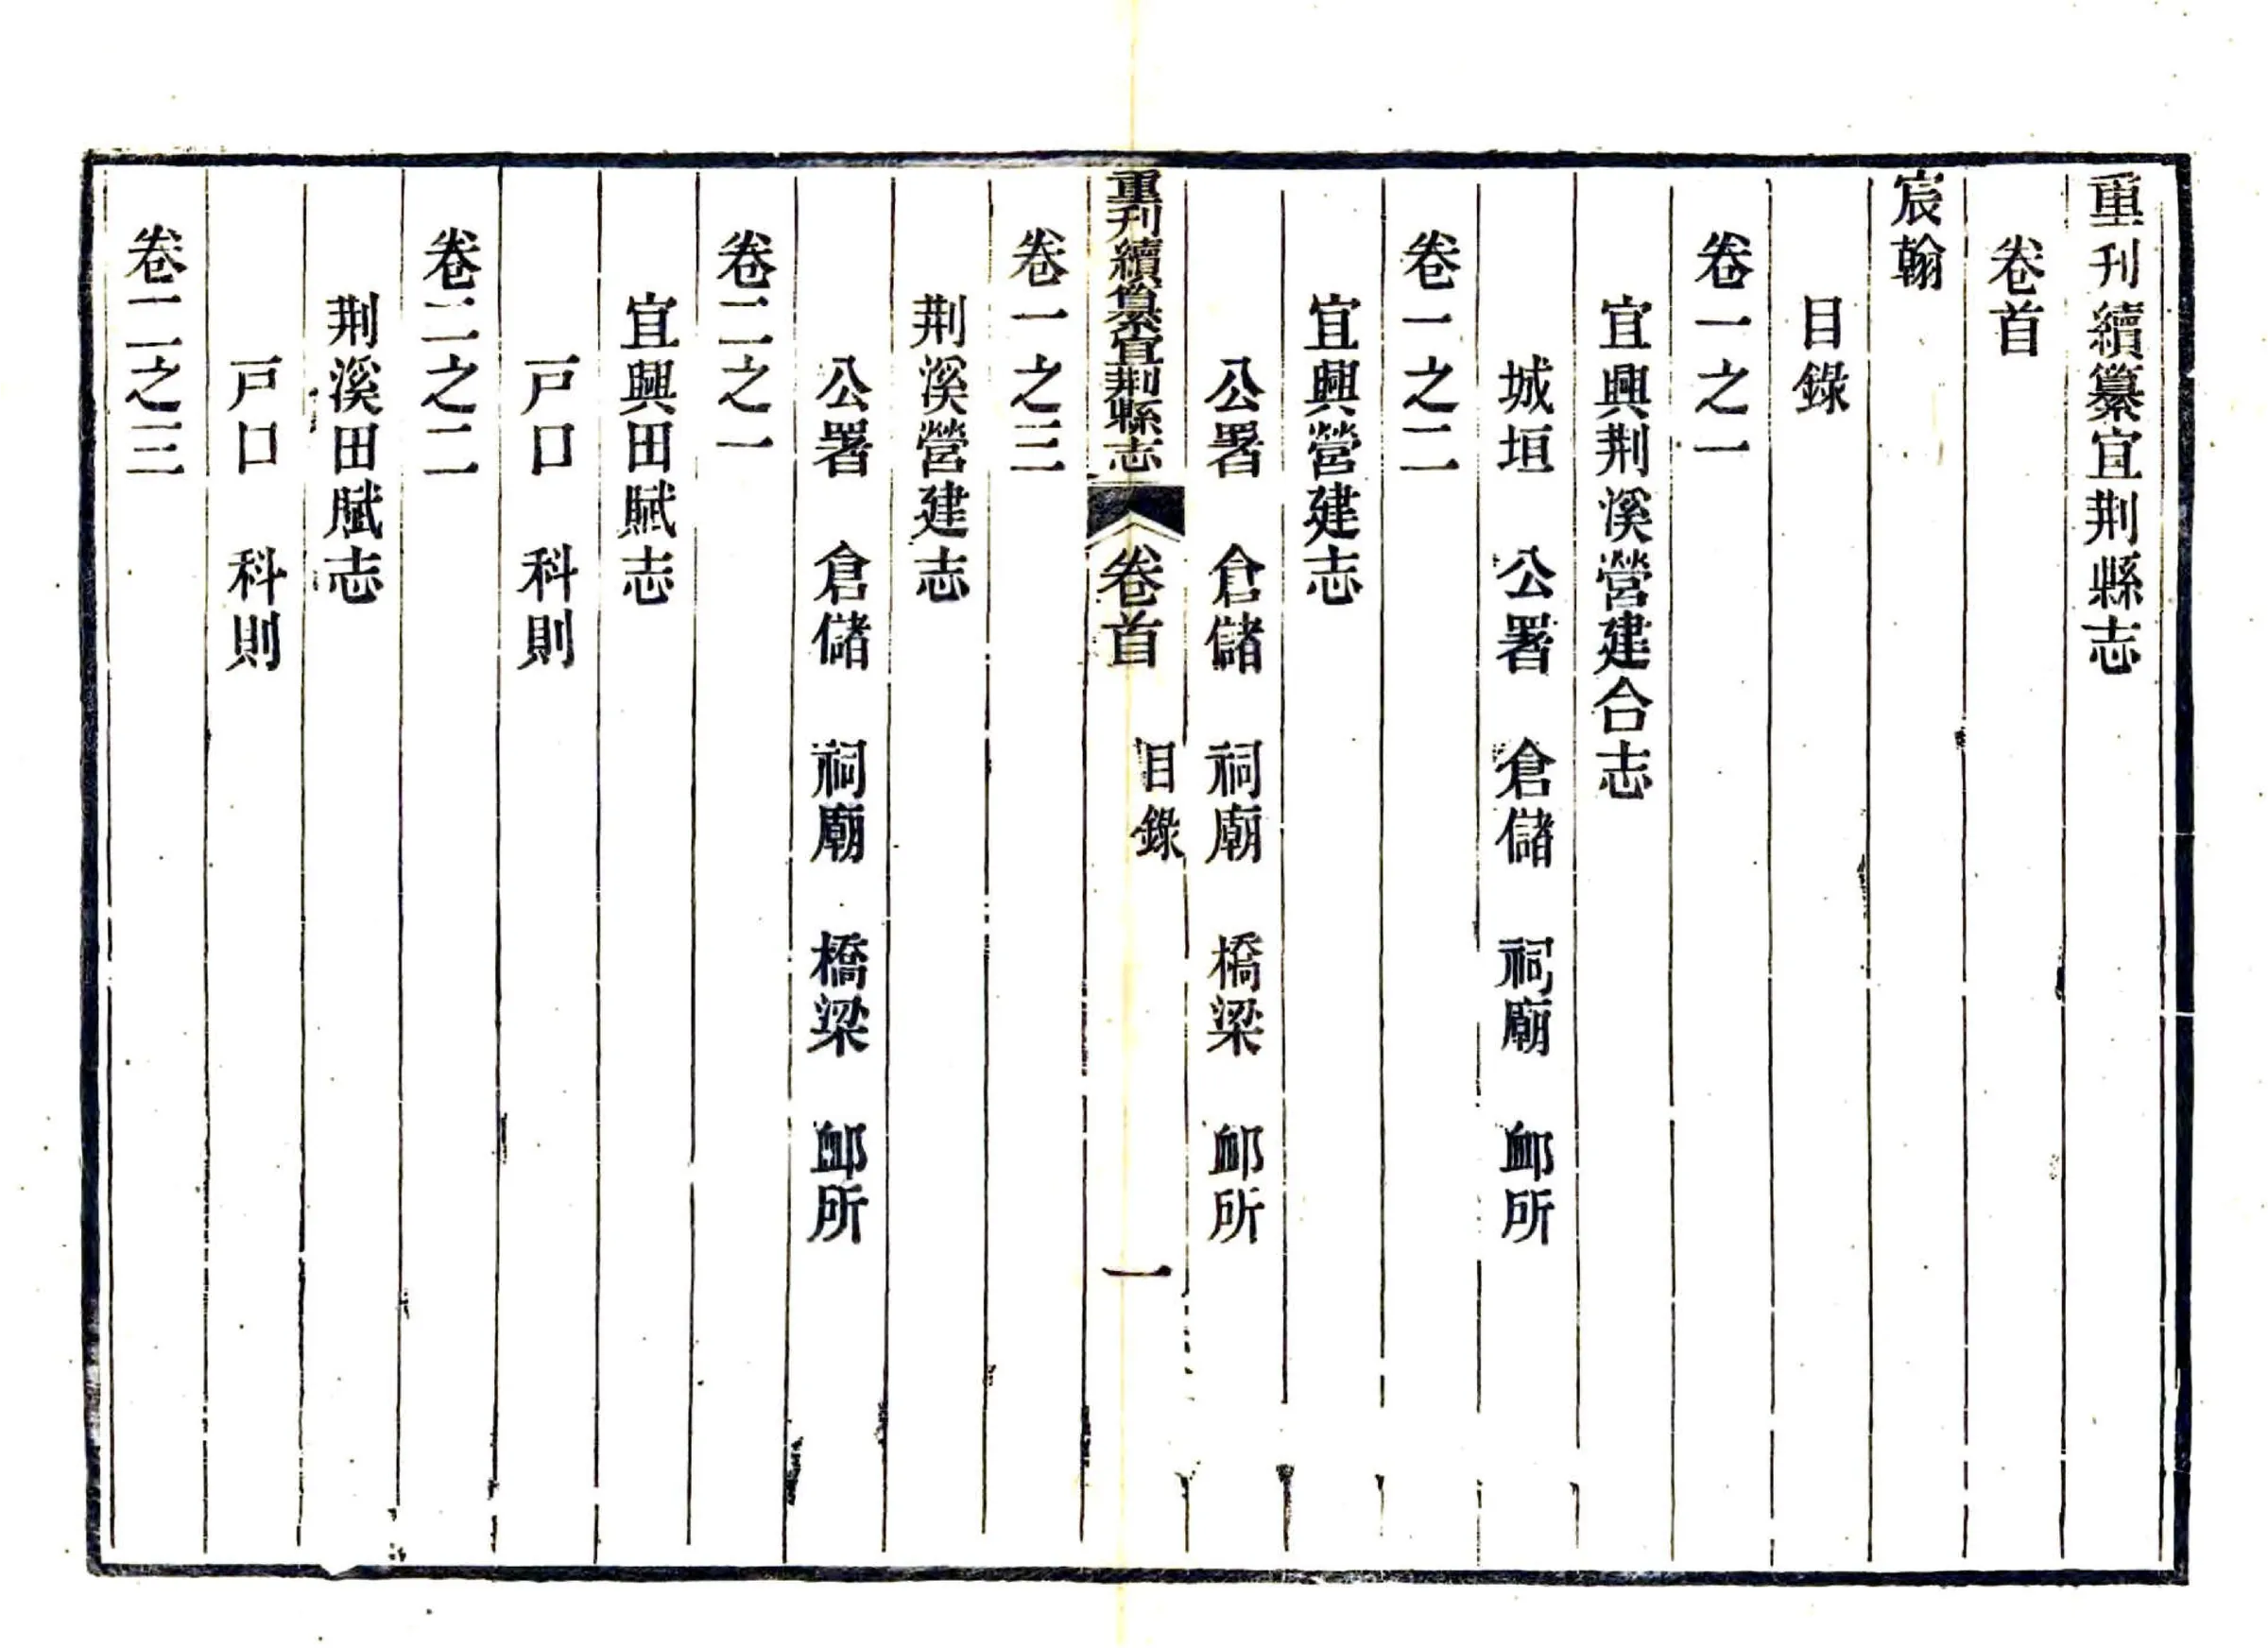 重刊續纂宜荆縣志
卷首
宸翰
目錄
卷一之一
宜興荆溪營建合志
城垣　公署　倉儲　祠廟　卹所
卷一之二
宜興營建志
公署　倉儲　祠廟　橋梁　卹所
重刊續纂宜荆縣志　卷首　目錄　一
卷一之三
荆溪營建志
公署　倉儲　祠廟　橋梁　卹所
卷二之一
宜興田賦志
戸口　科則
卷二之二
荆溪田賦志
戸口　科則
卷二之三